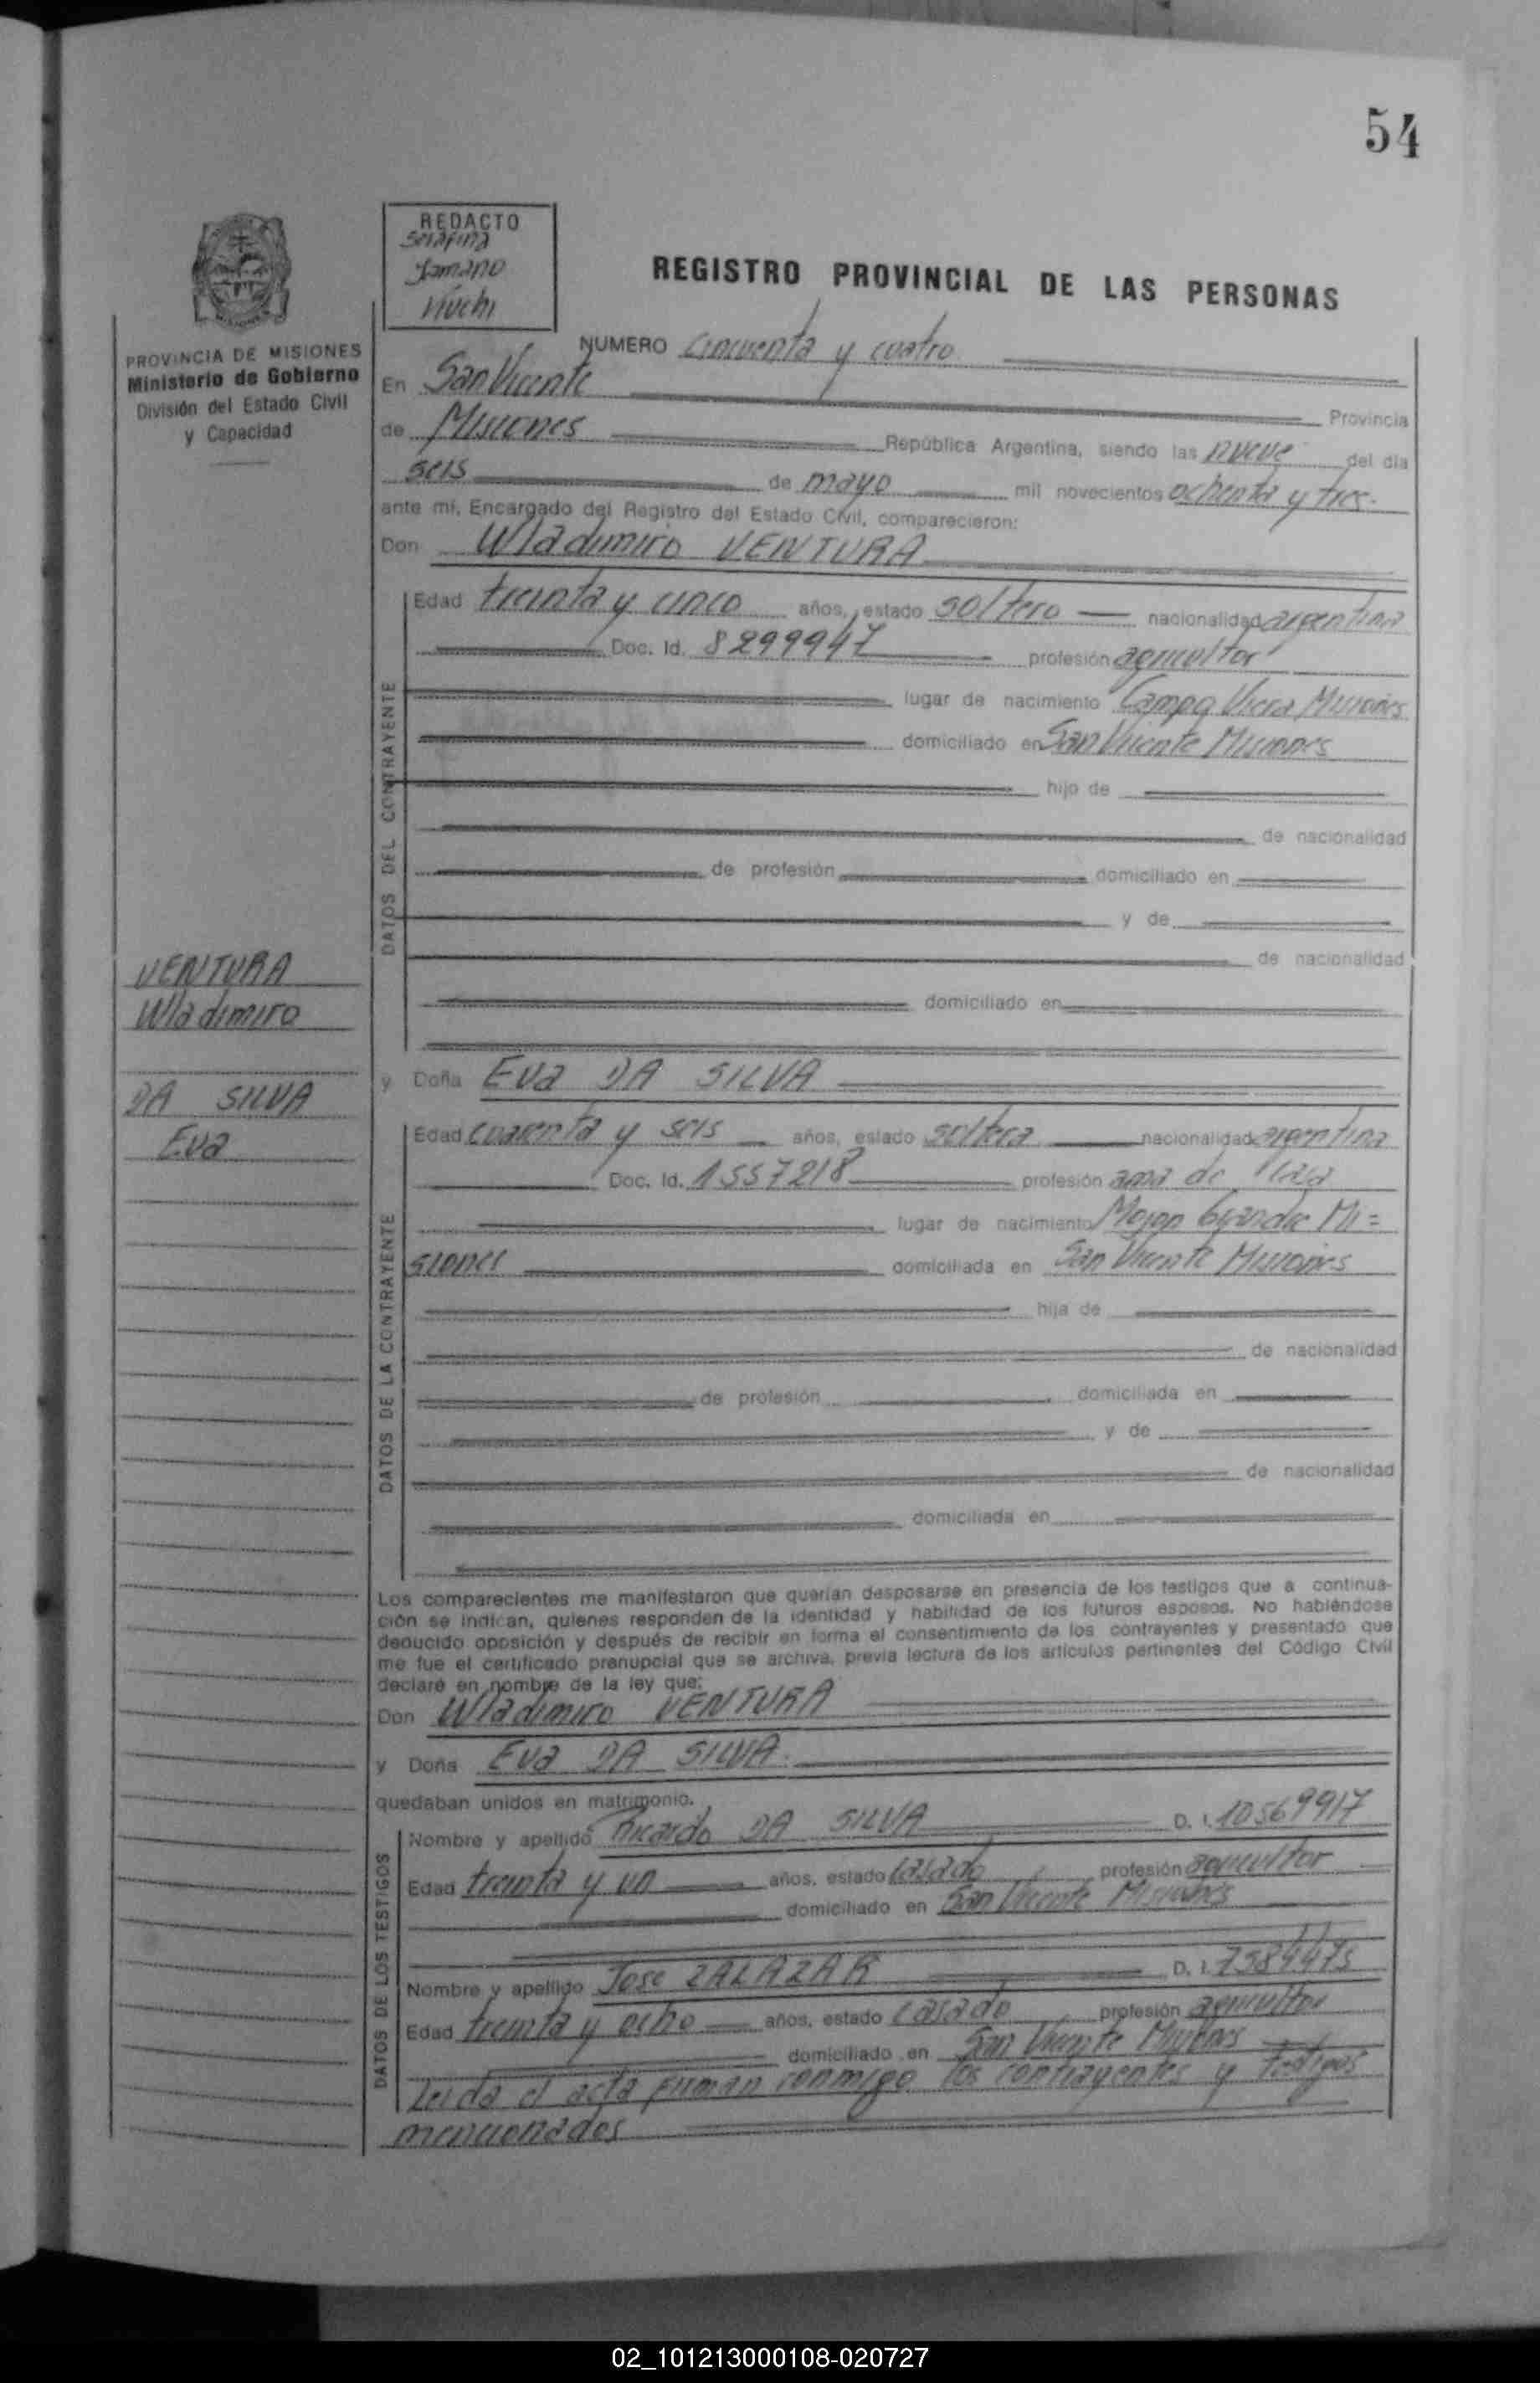 54
REDACTO
Serafina
Vivchi
REGISTRO PROVINCIAL DE LAS PERSONAS
PROVINCIA DE MISIONES
Ministerio de Gobierno
División del Estado Civil
y Capacidad
NUMERO Cincuenta y cuatro
En San Vicente Provincia
de Misiones República Argentina, siendo las nueve del día
seis de mayo mil novecientos ochenta y tres.
ante mí, Encargado del Registro del Estado Civil, comparecieron:
Don Wladimiro VENTURA
Edad treinta y cinco años, estado soltero nacionalidad argentina
Doc. Id. 8299947 profesión agricultor
lugar de nacimiento Campo Viera Misiones
domiciliado en San Vicente Misiones
hijo de
de nacionalidad
de profesión domiciliado en
y de
de nacionalidad
domiciliado en
DATOS DEL CONTRAYENTE
VENTURA
Wladimiro
DA SILVA
Eva
y Doña Eva DA SILVA
Edad cuarenta y seis años, estado soltera nacionalidad argentina
Doc. Id. 1557218 profesión ama de casa
lugar de nacimiento Mojon Grande Mi=
siones domiciliada en San Vicente Misiones
hija de
de nacionalidad
de profesión domiciliada en
y de
de nacionalidad
domiciliada en
DATOS DE LA CONTRAYENTE
Los comparecientes me manifestaron que querían desposarse en presencia de los testigos que a continua-
ción se indican, quienes responden de la identidad y habilidad de los futuros esposos. No habiéndose
deducido oposición y después de recibir en forma el consentimiento de los contrayentes y presentado que
me fue el certificado prenupcial que se archiva, previa lectura de los artículos pertinentes del Código Civil
declaré en nombre de la ley que:
Don Wladimiro VENTURA
y Doña Eva DA SILVA.
quedaban unidos en matrimonio.
Nombre y apellido Ricardo DA SILVA D. I. 10569917
Edad treinta y un años, estado casado profesión agricultor
domiciliado en San Vicente Misiones
Nombre y apellido Jose ZALAZAR D. I. 7584475
Edad treinta y ocho años, estado casado profesión agricultor
domiciliado en San Vicente Misiones
DATOS DE LOS TESTIGOS
Leida el acta firman conmigo los contrayentes y testigos
mencionados
02_101213000108-020727